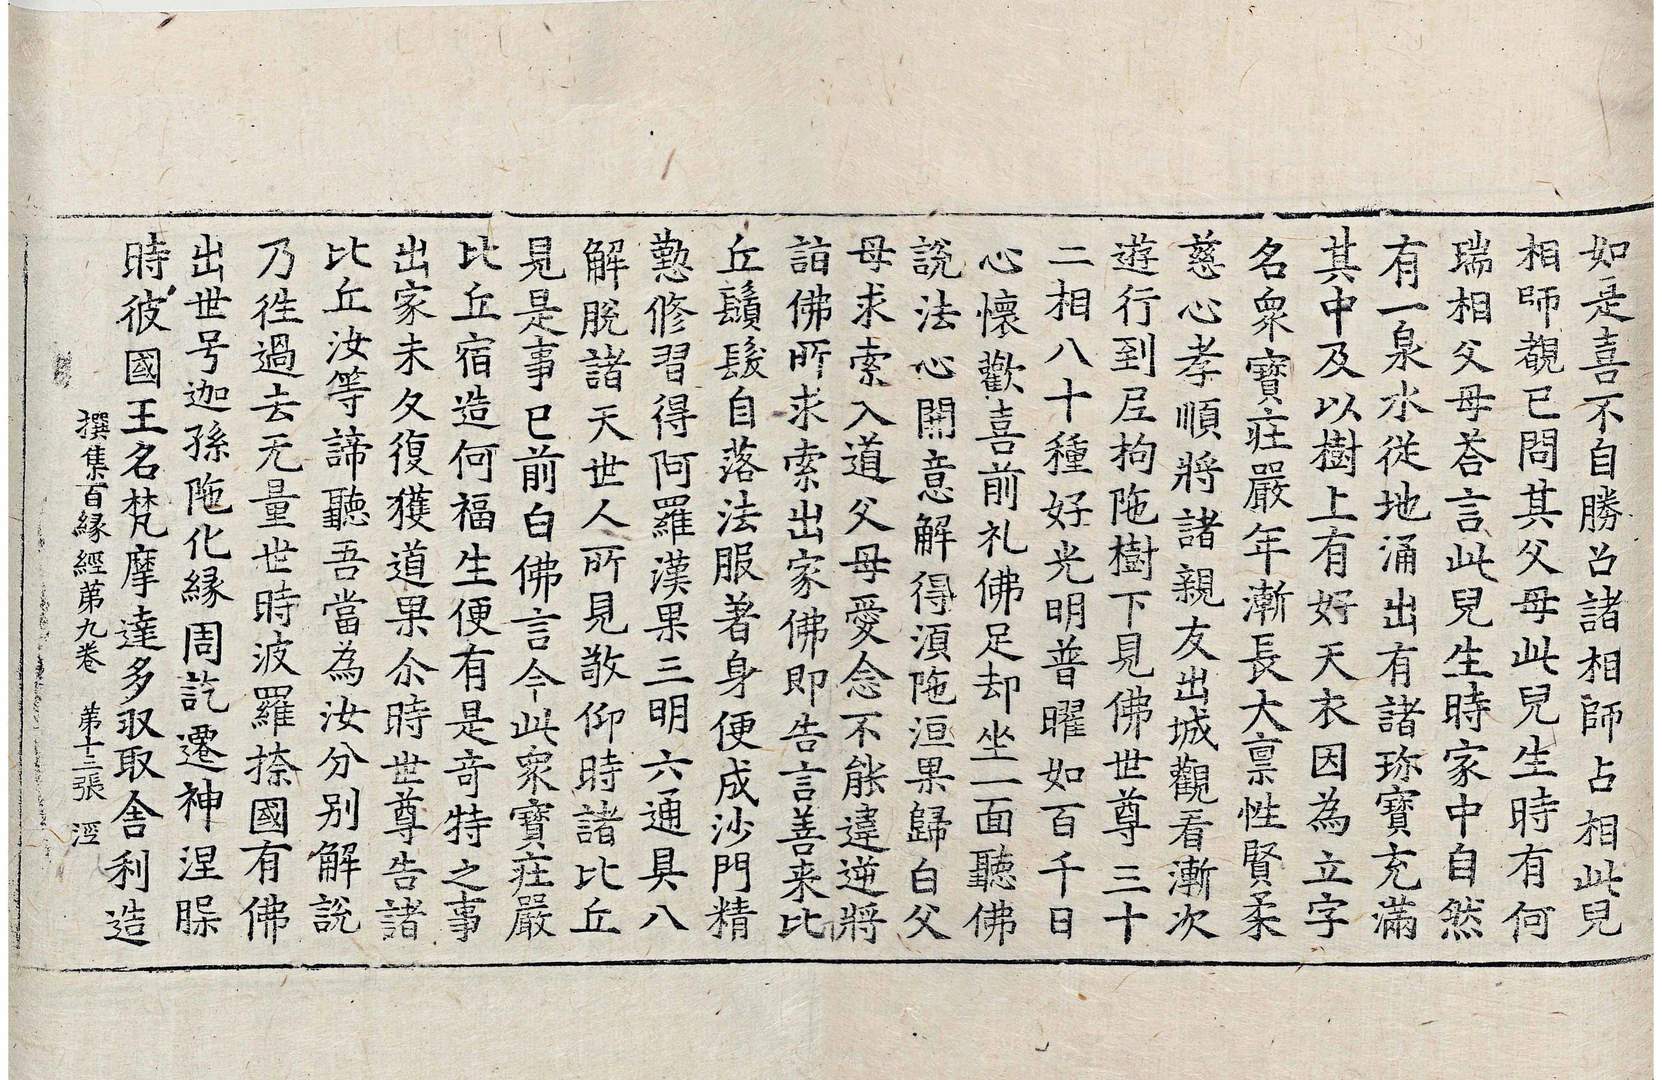 如是喜不自勝召諸相師占相此兒
相師覩已問其父母此兒生時有何
瑞相父母荅言此兒生時家中自然
有一泉水從地涌出有諸珎寶充滿
其中及以樹上有好天衣因為立字
名衆寶莊嚴年漸長大禀性賢柔
慈心孝順將諸親友出城觀看漸次
遊行到尼拘陁樹下見佛世尊三十
二相八十種好光明普曜如百千日
心懷歡喜前礼佛足却坐一面聽佛
說法心開意解得湏陁洹果歸白父
母求索入道父母愛念不能違逆將
詣佛所求索出家佛即告言善来比
丘鬚髮自落法服著身便成沙門精
懃修習得阿羅漢果三明六通具八
解脫諸天世人所見敬仰時諸比丘
見是事已前白佛言今此衆寶莊嚴
比丘宿造何福生便有是竒特之事
出家未久復獲道果尒時世尊告諸
比丘汝等諦聽吾當為汝分别解說
乃徃過去无量世時波羅捺國有佛
出世号迦孫陁化縁周訖遷神涅槃
時彼國王名梵摩達多収取舍利造
撰集百緣經第九卷 第十二張 涇